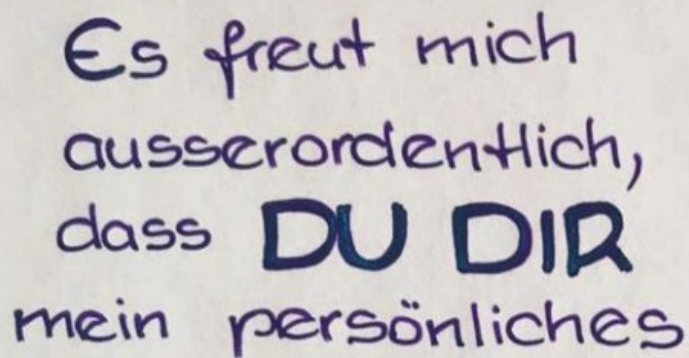 Es freut mich
ausserordentlich,
dass DU DIR
mein persönliches